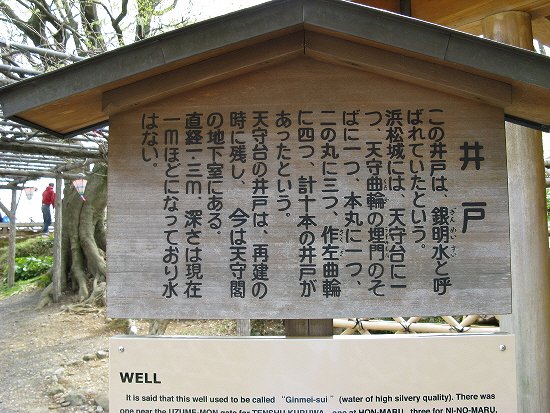 井戸
この井戸は、銀明水と呼
ばれていたという。
浜松城には、天守台に一
つ、天守曲輪の埋門のそ
ばに一つ、本丸に一つ、
二の丸に三つ、作左曲輪
に四つ、計十本の井戸が
あったという。
天守台の井戸は、再建の
時に残し、今は天守閣
の地下室にある。
直径一・三m、深さは現在
一mほどになっており水
はない。
WELL
It is said that this well used to be called "Ginmei-sui" (water of high silvery quality). There was
one near the UZUME-MON gate for TENSHU KURUWA, one at HON-MARU, three for NI-NO-MARU,